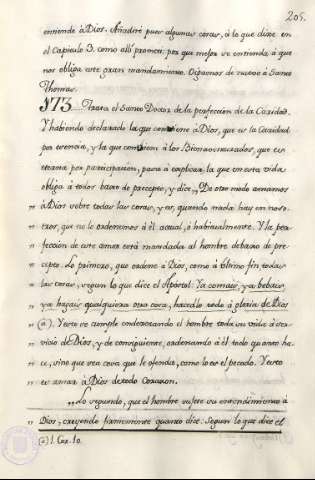 205.
entiende à Dios. Añadiré pues algunas cosas, à lo que dixe en
el Capitulo 3. como allí prometi: por que mejor se entienda à que
nos obliga este gran mandamiento. Oigamos de nuevo à Santo
Thomas.
§73. Trata el Santo Doctor de la perfeccion de la Caridad.
Y habiendo declarado la que conviene a Dios, que es la Caridad
por esencia, y la que convien à los Bienaventurados, que es
eterna por participacion, pasa à explicar la que en esta vida
obliga à todos baxo de precepto, y dice,, De otro modo amamos
,, à Dios sobre todas las cosas, y es, quando nada hay en noso-
,, tros, que no le ordenemos à èl actual, ò habitualmente. Y la per-
,, feccion de este amor està mandada al hombre debaxo de pre-
,, cepto. Lo primero, que ordene à Dios, como à ultimo fin todas
,, las cosas, segun lo que dice el Apostol: Ya comais, ya bebais,
,, ya hagais qualquiera otra cosa, hacedlo todo à gloria de Dios
,, (a). Y esto se cumple enderezando el hombre toda su vida à ser-
,, vicio de Dios, y de consiguiente, ordenando à èl todo quanto ha-
,, ce, sino que sea cosa que le ofenda, como lo es el pecado. Y esto
,, es amar à Dios de todo Corazon.
,, Lo segundo, que el hombre sujete su entendimiento à
,, Dios, creyendo firmemente quanto dice. Segun lo que dice el
(a) 1. Cor. 10.